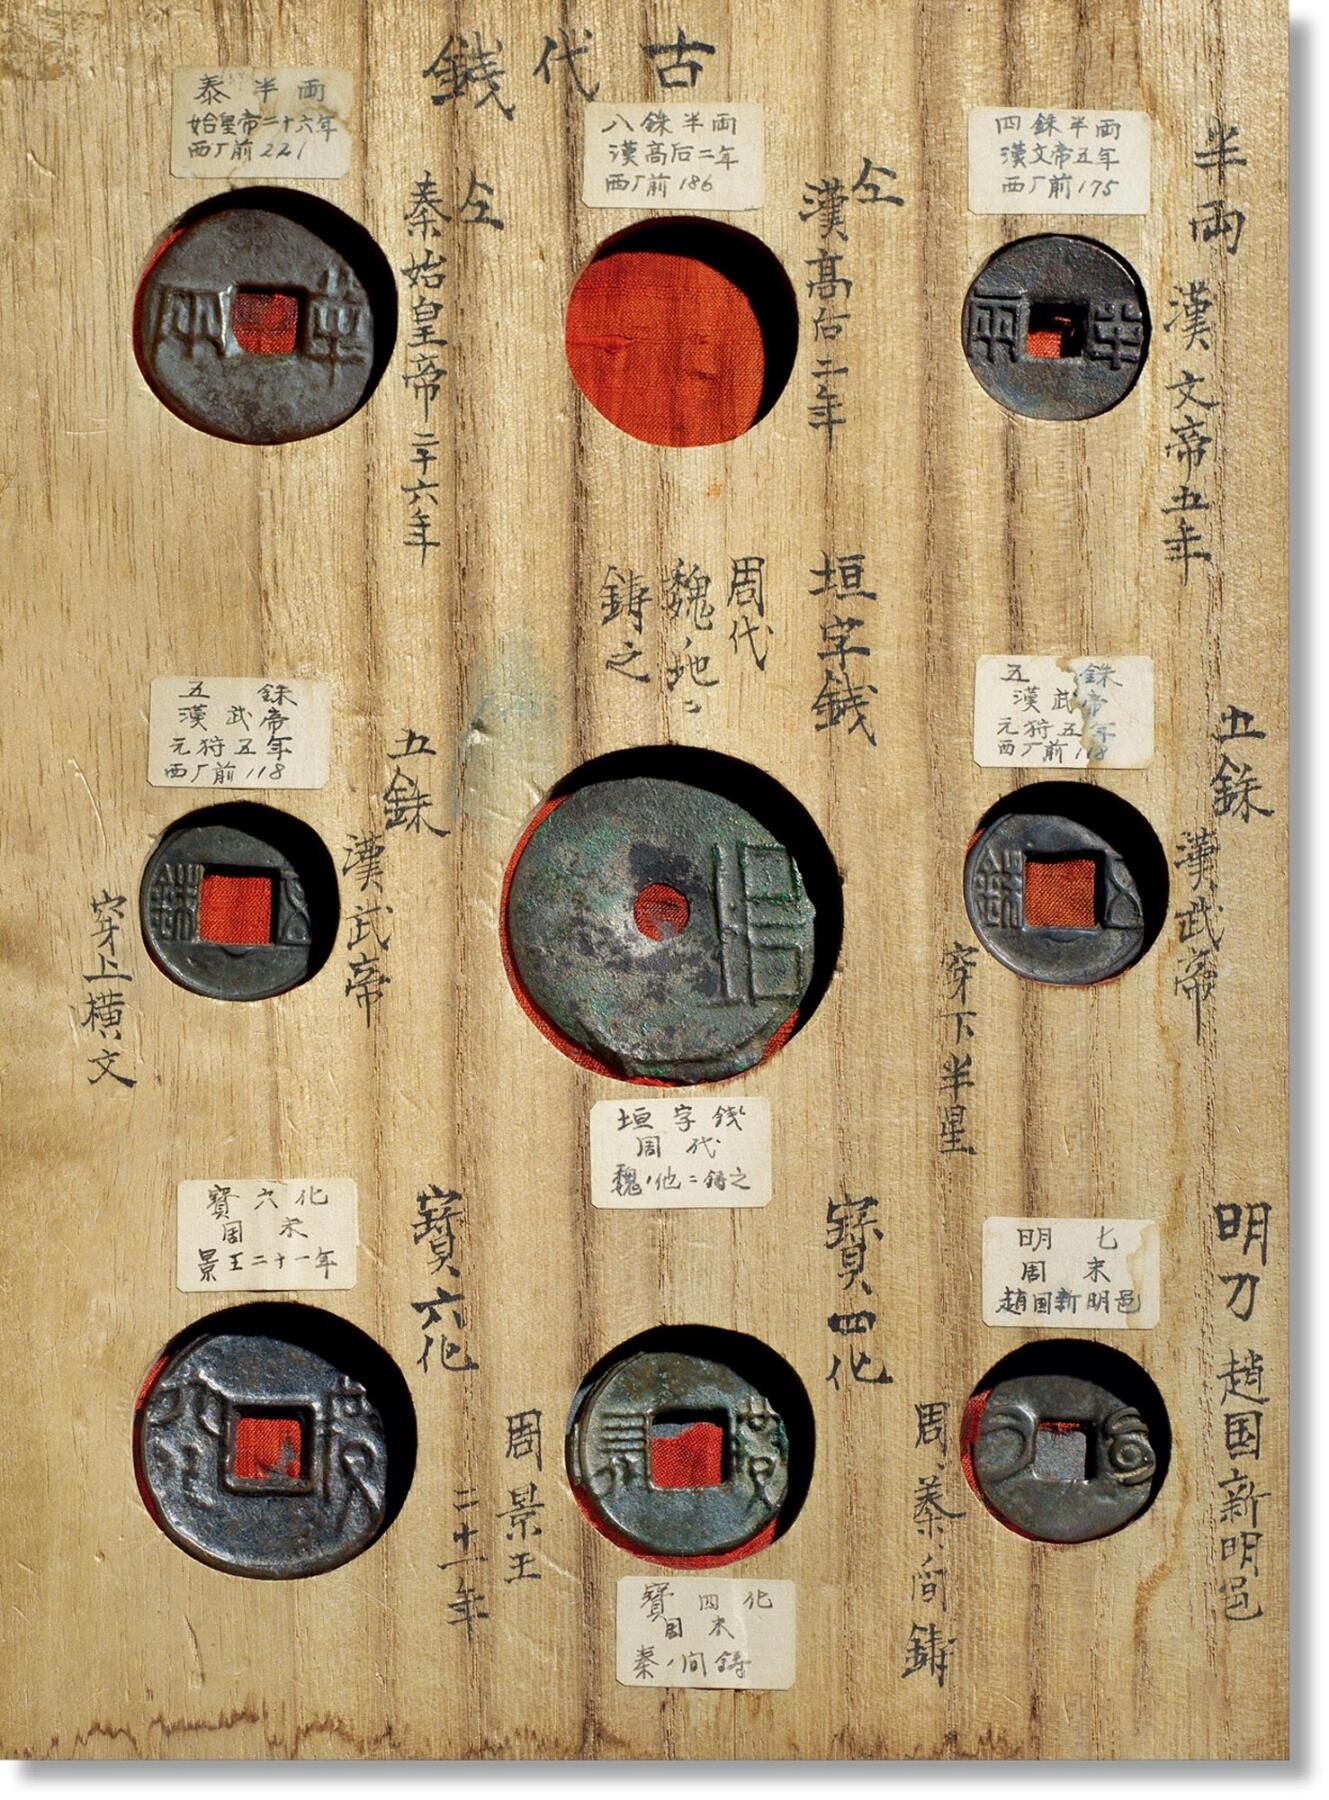 古代錢
半両 漢文帝五年
仝 漢高后二年
仝 秦始皇帝二十六年
四銖半両
漢文帝五年
西厂前175
八銖半両
漢高后二年
西厂前186
泰半両
始皇帝二十六年
西厂前221
五銖 漢武帝
穿下半星
垣字錢
周代
魏ノ地ニ
鋳之
五銖 漢武帝
穿上横文
五銖
漢武帝
元狩五年
西厂前118
垣字錢
周代
魏ノ他ニ鋳之
五銖
漢武帝
元狩五年
西厂前118
明刀 趙国新明邑
寶四化
周、秦、間鋳
寶六化
周景王
二十一年
明七
周末
趙国新明邑
寶四化
周末
秦ノ間鋳
寶六化
周末
景王二十一年